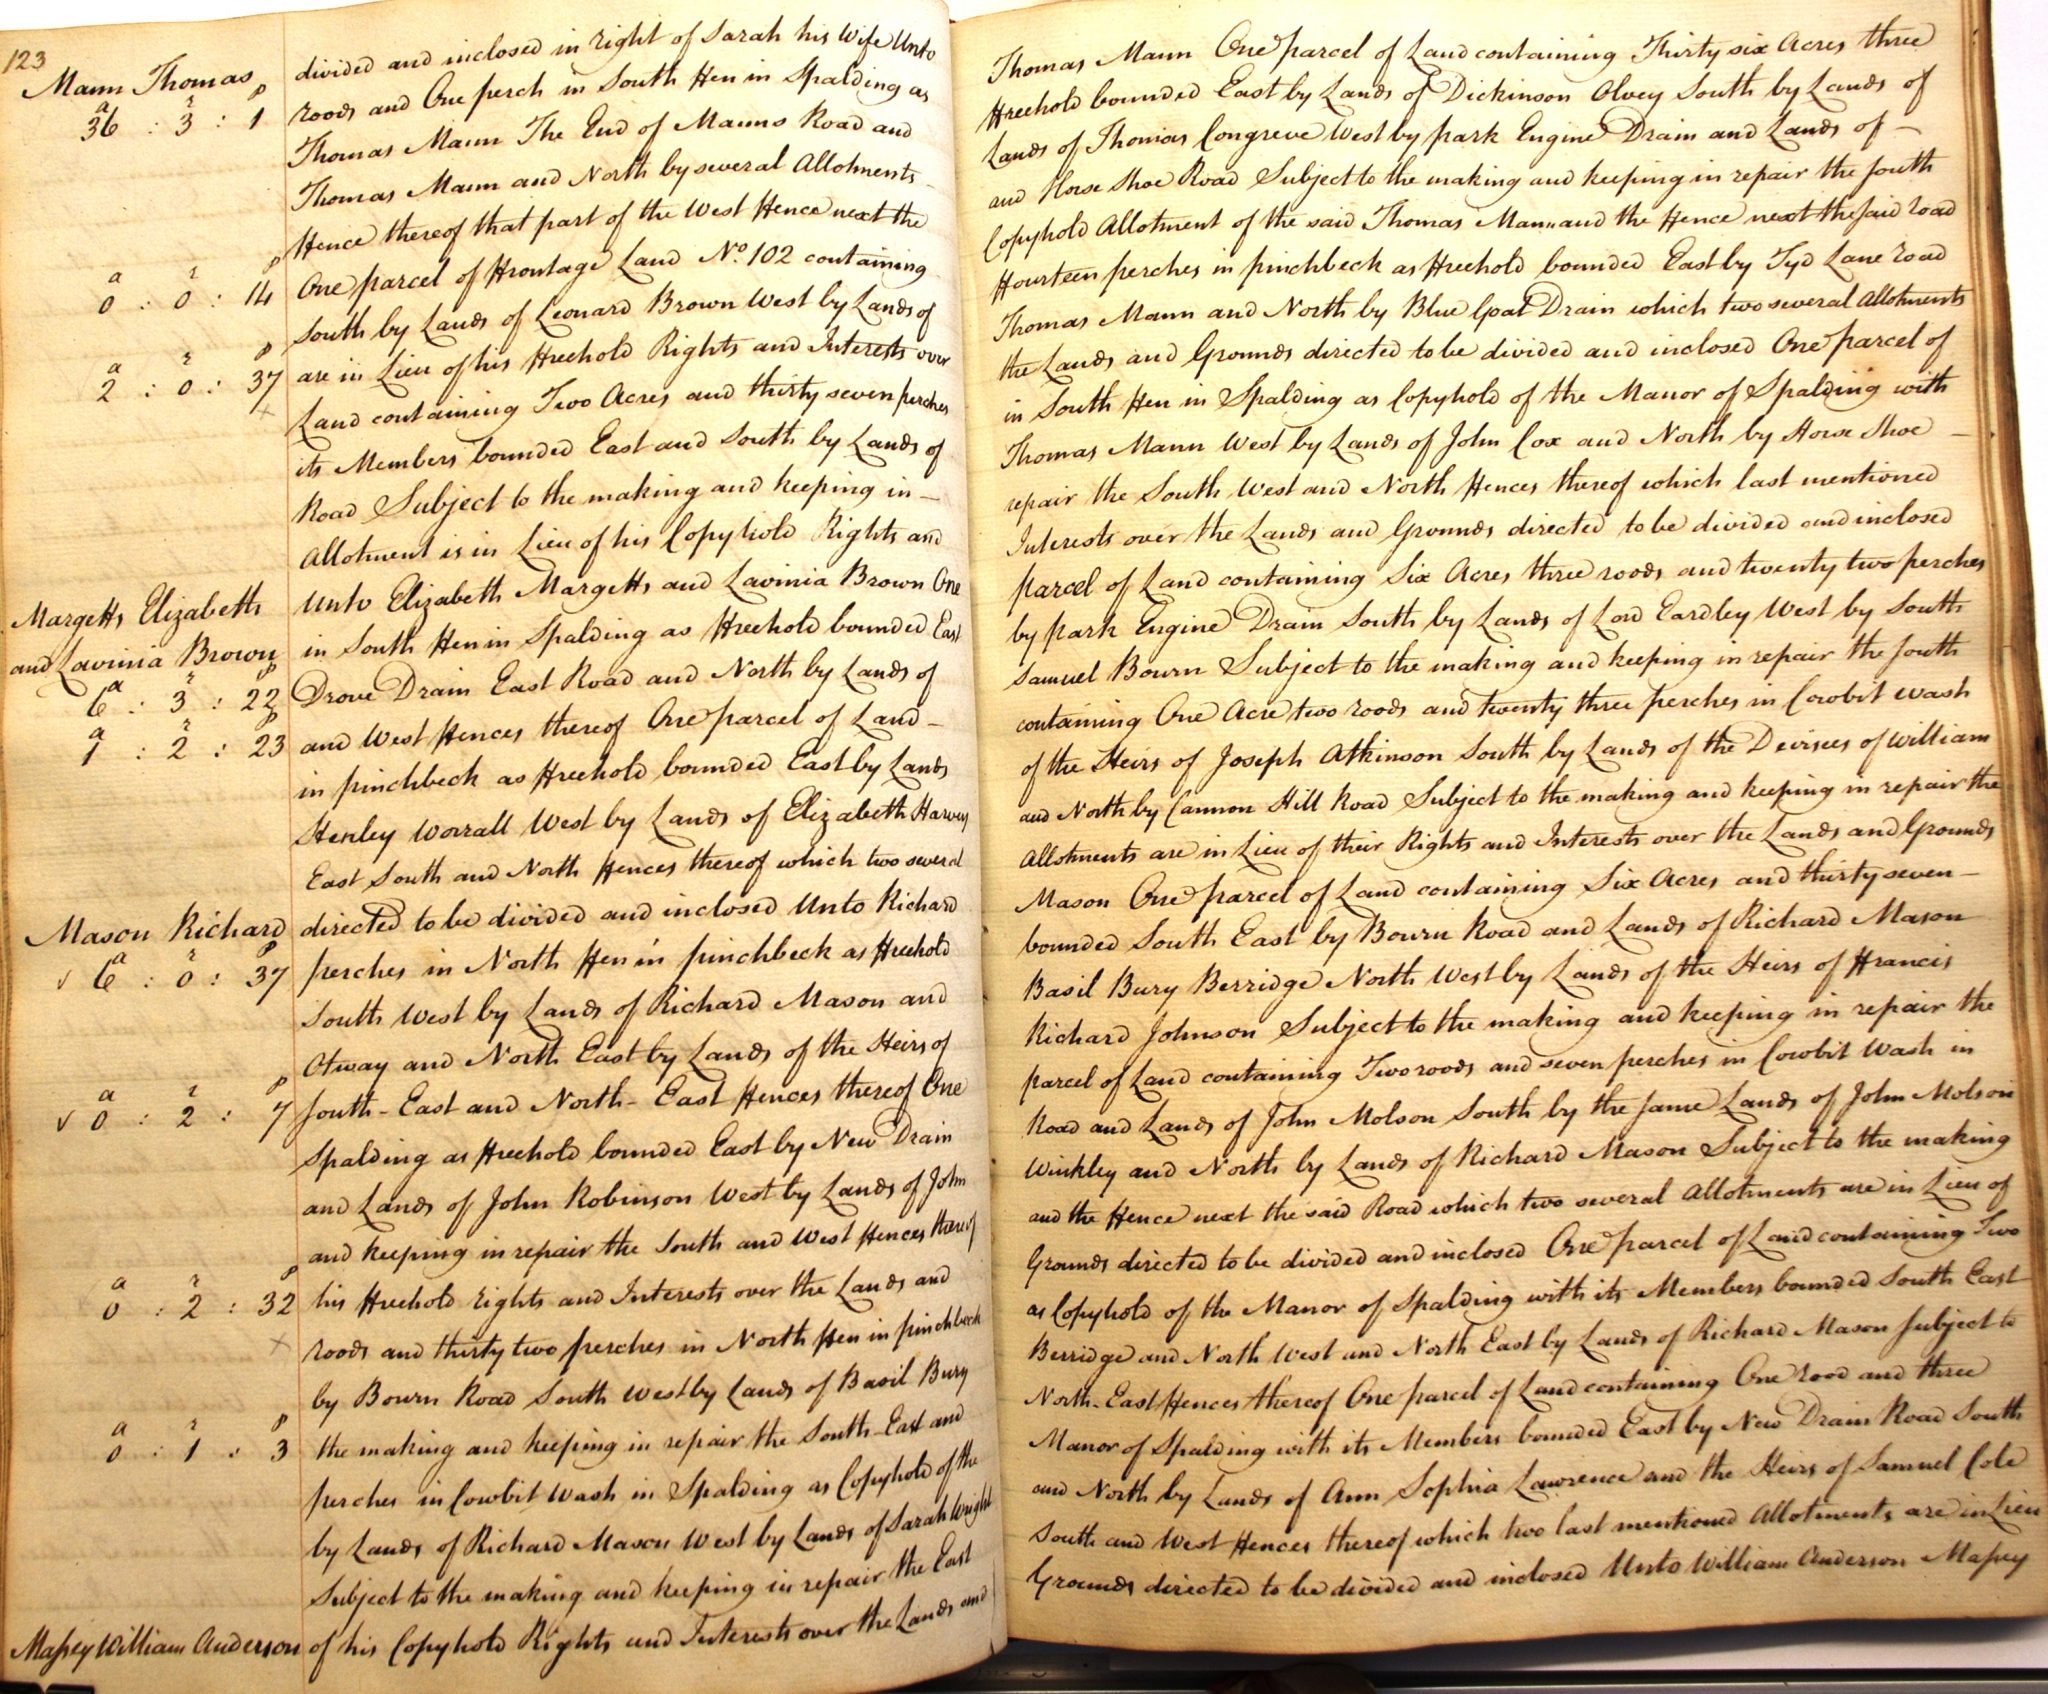 123
Mann Thomas
a r p
36 : 3 : 1
divided and inclosed in right of Sarah his Wife Unto Thomas Mann One parcel of Land containing Thirty six Acres three
roods and One perch in South Fen in Spalding as Freehold bounded East by Lands of Dickinson Olvey South by Lands of
Thomas Mann The End of Manns Road and Lands of Thomas Congreve West by park Engine Drain and Lands of —
Thomas Mann and North by several Allotments and Horse Shoe Road Subject to the making and keeping in repair the South
Fence thereof that part of the West Fence next the Copyhold Allotment of the said Thomas Mann and the Fence next the said road
a r p
0 : 0 : 14
One parcel of Frontage Land No. 102 containing Fourteen perches in pinchbeck as Freehold bounded East by Tyd Lane road
South by Lands of Leonard Brown West by Lands of Thomas Mann and North by Blue Goat Drain which two several Allotments
a r p
2 : 0 : 37
are in Lieu of his Freehold Rights and Interests over the Lands and Grounds directed to be divided and inclosed One parcel of
Land containing Two Acres and thirty seven perches in South Fen in Spalding as Copyhold of the Manor of Spalding with
its Members bounded East and South by Lands of Thomas Mann West by Lands of John Cox and North by Horse Shoe —
Road Subject to the making and keeping in — repair the South West and North Fences thereof which last mentioned
Allotment is in Lieu of his Copyhold Rights and Interests over the Lands and Grounds directed to be divided and inclosed
Margetts Elizabeth
and Lavinia Brown
a r p
6 : 3 : 22
a r p
1 : 2 : 23
Unto Elizabeth Margetts and Lavinia Brown One parcel of Land containing Six Acres three roods and twenty two perches
in South Fen in Spalding as Freehold bounded East by park Engine Drain South by Lands of Lord Eardley West by South
Drove Drain East Road and North by Lands of Samuel Bourn Subject to the making and keeping in repair the South
and West Fences thereof One parcel of Land — containing One Acre two roods and twenty three perches in Cowbit Wash
in pinchbeck as Freehold bounded East by Lands of the Heirs of Joseph Atkinson South by Lands of the Devisees of William
Henley Worrall West by Lands of Elizabeth Harvey and North by Cannon Hill Road Subject to the making and keeping in repair the
East South and North Fences thereof which two several Allotments are in Lieu of their Rights and Interests over the Lands and Grounds
Mason Richard
a r p
6 : 0 : 37
directed to be divided and inclosed Unto Richard Mason One parcel of Land containing Six Acres and thirty seven —
perches in North Fen in pinchbeck as Freehold bounded South East by Bourn Road and Lands of Richard Mason
South West by Lands of Richard Mason and Basil Bury Berridge North West by Lands of the Heirs of Francis
Otway and North East by Lands of the Heirs of Richard Johnson Subject to the making and keeping in repair the
a r p
0 : 2 : 7
South-East and North-East Fences thereof One parcel of Land containing Two roods and seven perches in Cowbit Wash in
Spalding as Freehold bounded East by New Drain Road and Lands of John Molson South by the same Lands of John Molson
and Lands of John Robinson West by Lands of John Winkley and North by Lands of Richard Mason Subject to the making
and keeping in repair the South and West Fences thereof and the Fence next the said Road which two several Allotments are in Lieu of
a r p
0 : 2 : 32
his Freehold rights and Interests over the Lands and Grounds directed to be divided and inclosed One parcel of Land containing Two
roods and thirty two perches in North Fen in pinchbeck as Copyhold of the Manor of Spalding with its Members bounded South East
by Bourn Road South West by Lands of Basil Bury Berridge and North West and North East by Lands of Richard Mason Subject to
a r p
0 : 1 : 3
the making and keeping in repair the South-East and North-East Fences thereof One parcel of Land containing One rood and three
perches in Cowbit Wash in Spalding as Copyhold of the Manor of Spalding with its Members bounded East by New Drain Road South
by Lands of Richard Mason West by Lands of Sarah Wright and North by Lands of Ann Sophia Lawrence and the Heirs of Samuel Cole
Subject to the making and keeping in repair the East South and West Fences thereof which two last mentioned Allotments are in Lieu
Massey William Anderson
of his Copyhold Rights and Interests over the Lands and Grounds directed to be divided and inclosed Unto William Anderson Massey